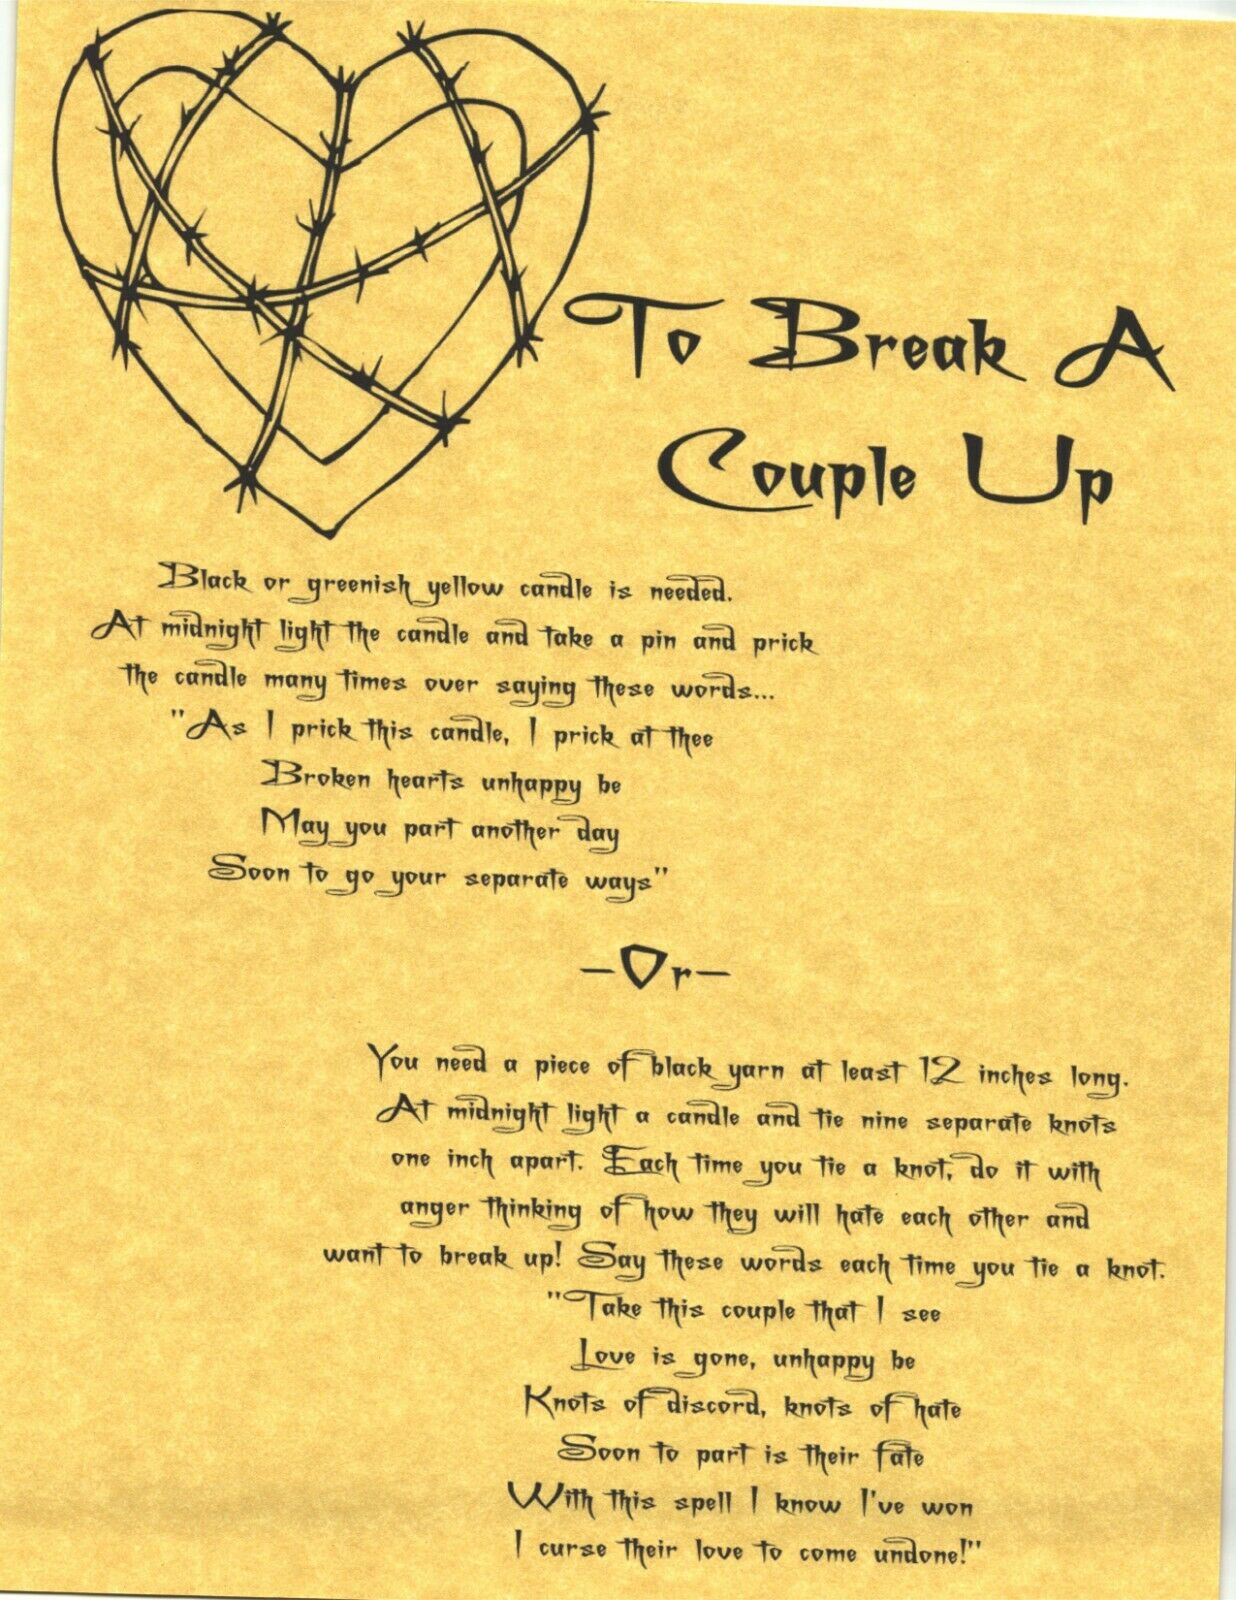 To Break A
Couple Up
Black or greenish yellow candle is needed.
At midnight light the candle and take a pin and prick
the candle many times over saying these words...
"As I prick this candle, I prick at thee
Broken hearts unhappy be
May you part another day
Soon to go your separate ways"
-Or-
You need a piece of black yarn at least 12 inches long.
At midnight light a candle and tie nine separate knots
one inch apart. Each time you tie a knot, do it with
anger thinking of how they will hate each other and
want to break up! Say these words each time you tie a knot.
"Take this couple that I see
Love is gone, unhappy be
Knots of discord, knots of hate
Soon to part is their fate
With this spell I know I've won
I curse their love to come undone!"